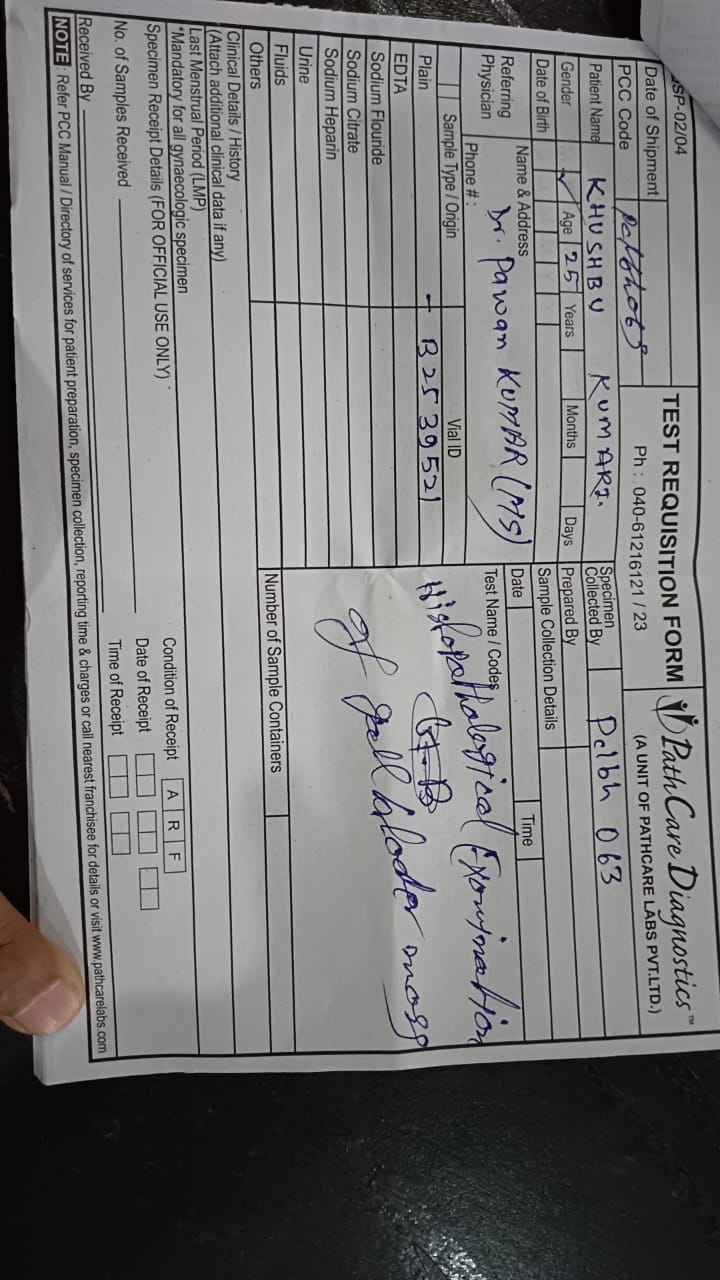 ISP-02/04
TEST REQUISITION FORM
PathCare Diagnostics™
(A UNIT OF PATHCARE LABS PVT.LTD.)
Date of Shipment
Ph : 040-61216121 / 23
PCC Code
Patient Name KHUSHBU KUMARI.
Specimen Collected By Pclbh 063
Gender Age 25 Years Months Days
Prepared By
Date of Birth
Sample Collection Details
Referring Physician
Name & Address Dr. Pawan KUMAR (MS)
Phone # :
Date Time
Test Name / Codes
Histopathological Examination
of gall bladder mass
Sample Type / Origin Vial ID
Plain - B2539521
EDTA
Sodium Flouride
Sodium Citrate
Sodium Heparin
Urine
Fluids
Others
Number of Sample Containers
Clinical Details / History
(Attach additional clinical data if any)
Last Menstrual Period (LMP)
*Mandatory for all gynaecologic specimen
Specimen Receipt Details (FOR OFFICIAL USE ONLY)
No. of Samples Received
Received By
Condition of Receipt A R F
Date of Receipt
Time of Receipt
NOTE : Refer PCC Manual / Directory of services for patient preparation, specimen collection, reporting time & charges or call nearest franchisee for details or visit www.pathcarelabs.com